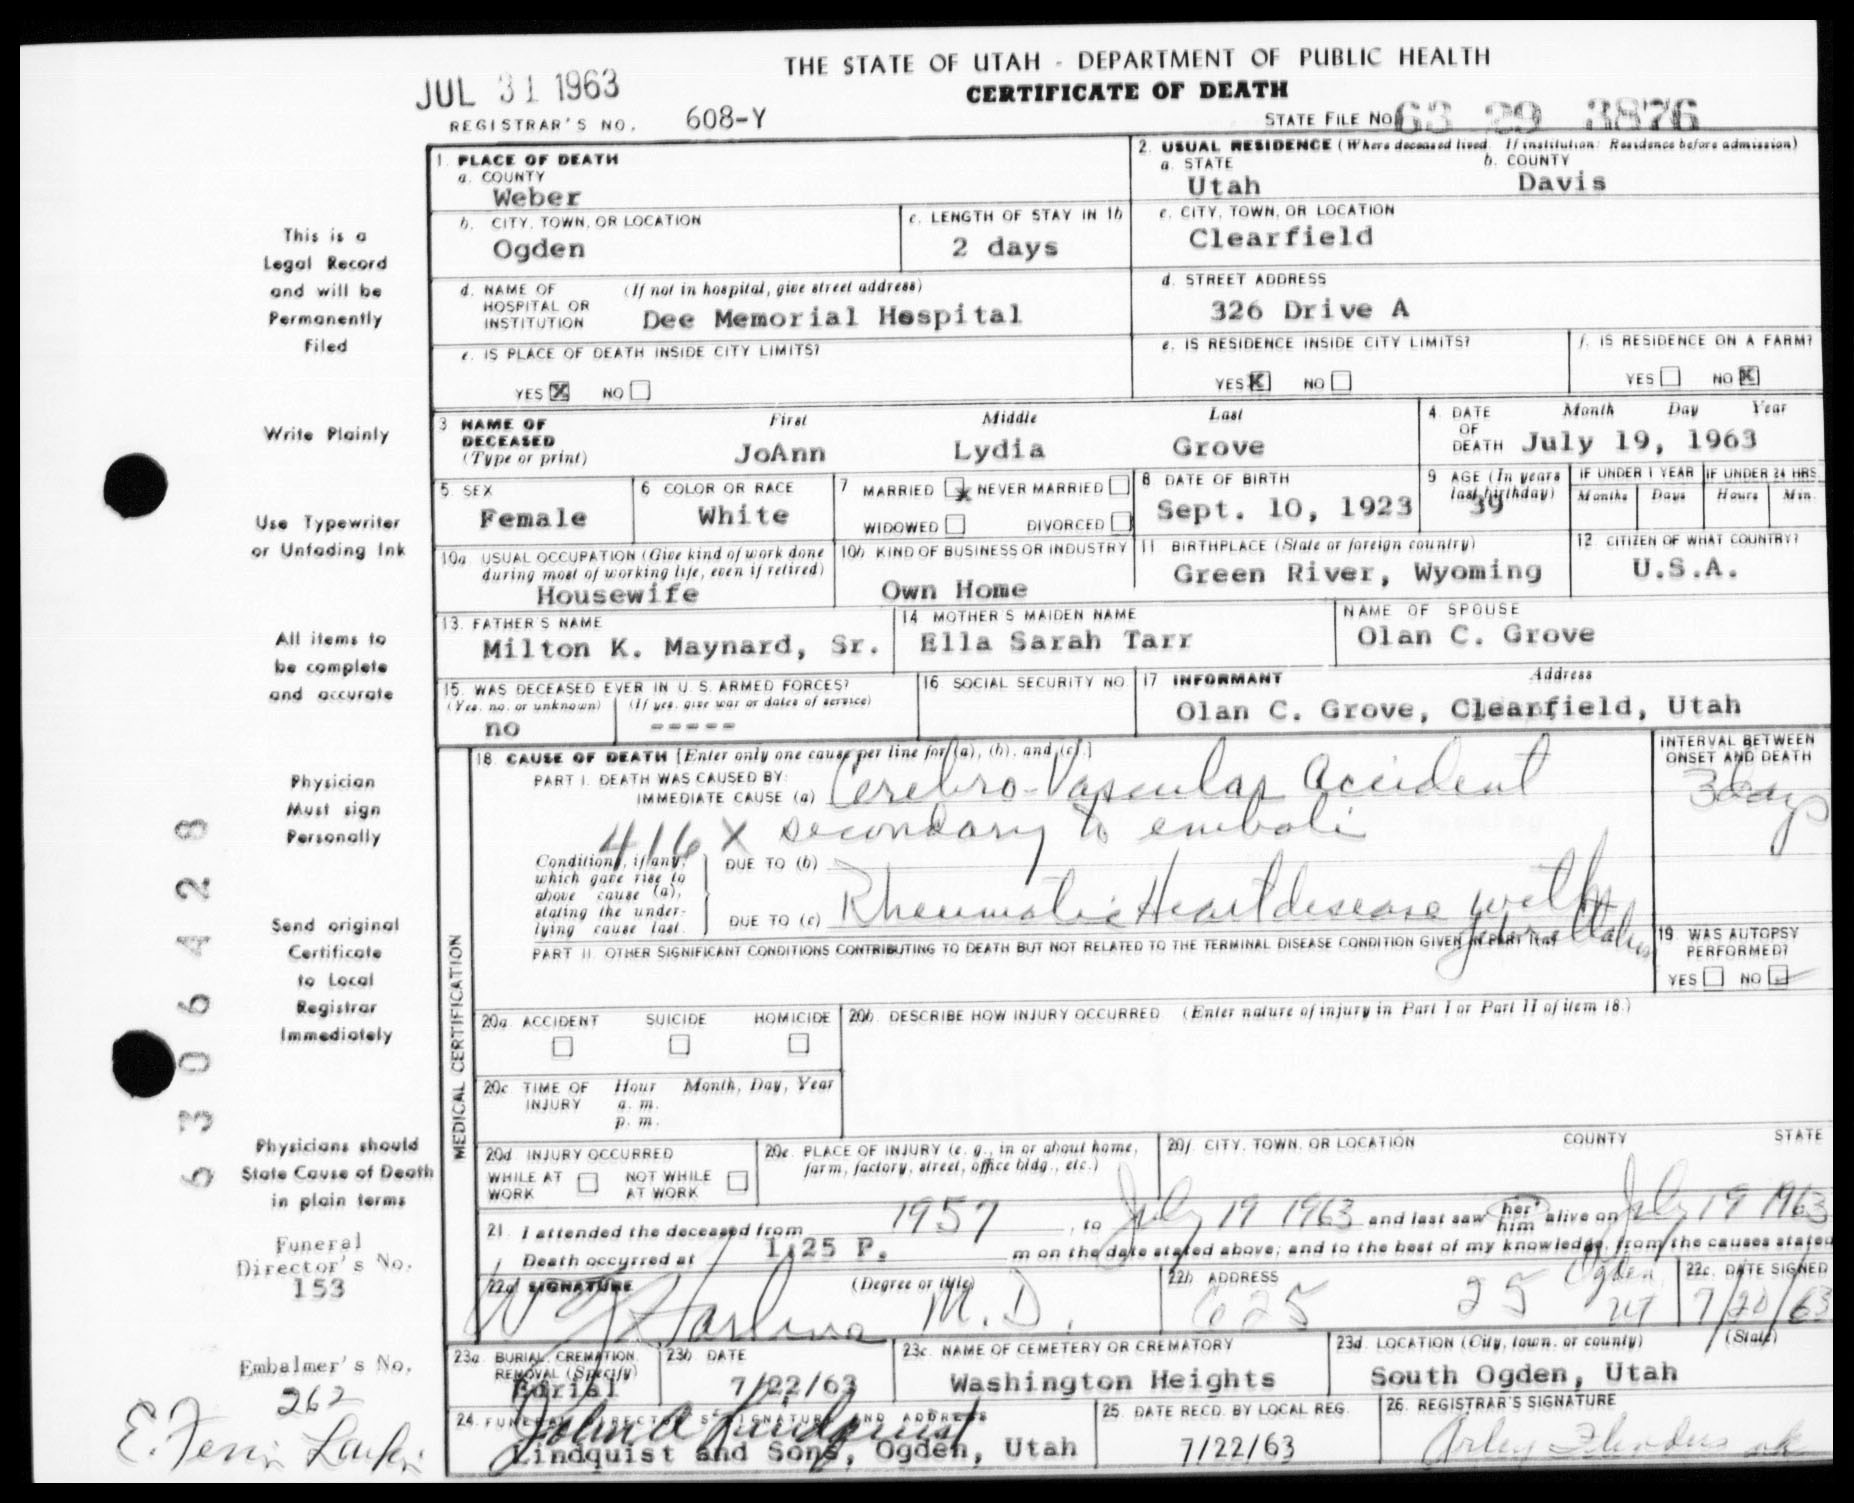 THE STATE OF UTAH - DEPARTMENT OF PUBLIC HEALTH
JUL 31 1963
CERTIFICATE OF DEATH
REGISTRAR'S NO. 608-Y
STATE FILE NO. 63 29 3876
1. PLACE OF DEATH
a. COUNTY
Weber
2. USUAL RESIDENCE (Where deceased lived. If institution: Residence before admission)
a. STATE
Utah
b. COUNTY
Davis
b. CITY, TOWN, OR LOCATION
Ogden
c. LENGTH OF STAY IN 1b
2 days
c. CITY, TOWN, OR LOCATION
Clearfield
d. NAME OF HOSPITAL OR INSTITUTION
(If not in hospital, give street address)
Dee Memorial Hospital
d. STREET ADDRESS
326 Drive A
e. IS PLACE OF DEATH INSIDE CITY LIMITS?
YES X NO
e. IS RESIDENCE INSIDE CITY LIMITS?
YES X NO
f. IS RESIDENCE ON A FARM?
YES NO X
3 NAME OF DECEASED
(Type or print)
First Middle Last
JoAnn Lydia Grove
4. DATE OF DEATH
Month Day Year
July 19, 1963
5. SEX
Female
6 COLOR OR RACE
White
7 MARRIED X NEVER MARRIED
WIDOWED DIVORCED
8 DATE OF BIRTH
Sept. 10, 1923
9 AGE (In years last birthday)
39
IF UNDER 1 YEAR
Months Days
IF UNDER 24 HRS.
Hours Min.
10a USUAL OCCUPATION (Give kind of work done during most of working life, even if retired)
Housewife
10b KIND OF BUSINESS OR INDUSTRY
Own Home
11 BIRTHPLACE (State or foreign country)
Green River, Wyoming
12 CITIZEN OF WHAT COUNTRY?
U.S.A.
13. FATHER'S NAME
Milton K. Maynard, Sr.
14 MOTHER'S MAIDEN NAME
Ella Sarah Tarr
NAME OF SPOUSE
Olan C. Grove
15. WAS DECEASED EVER IN U.S. ARMED FORCES?
(Yes, no, or unknown) (If yes, give war or dates of service)
no -----
16 SOCIAL SECURITY NO.
17 INFORMANT Address
Olan C. Grove, Clearfield, Utah
MEDICAL CERTIFICATION
18. CAUSE OF DEATH [Enter only one cause per line for (a), (b), and (c).]
PART I. DEATH WAS CAUSED BY:
IMMEDIATE CAUSE (a) Cerebro-Vascular accident
416 X secondary to emboli
INTERVAL BETWEEN ONSET AND DEATH
3 days
Conditions, if any, which gave rise to above cause (a), stating the underlying cause last.
DUE TO (b)
DUE TO (c) Rheumatic Heart disease with
PART II. OTHER SIGNIFICANT CONDITIONS CONTRIBUTING TO DEATH BUT NOT RELATED TO THE TERMINAL DISEASE CONDITION GIVEN IN PART I(a)
19 WAS AUTOPSY PERFORMED?
YES NO
20a ACCIDENT SUICIDE HOMICIDE
20b. DESCRIBE HOW INJURY OCCURRED (Enter nature of injury in Part I or Part II of item 18.)
20c TIME OF INJURY
Hour Month, Day, Year
a. m.
p. m.
20d INJURY OCCURRED
WHILE AT WORK NOT WHILE AT WORK
20e. PLACE OF INJURY (e. g., in or about home, farm, factory, street, office bldg., etc.)
20f. CITY, TOWN, OR LOCATION COUNTY STATE
21. I attended the deceased from 1957, to July 19 1963 and last saw her him alive on July 19 1963
Death occurred at 1:25 P. m on the date stated above; and to the best of my knowledge, from the causes stated
22a SIGNATURE (Degree or title)
M.D.
22b ADDRESS
625 25 Ogden UT
22c. DATE SIGNED
7/20/63
23a. BURIAL, CREMATION, REMOVAL (Specify)
Burial
23b DATE
7/22/63
23c. NAME OF CEMETERY OR CREMATORY
Washington Heights
23d. LOCATION (City, town, or county) (State)
South Ogden, Utah
24. FUNERAL DIRECTOR'S SIGNATURE AND ADDRESS
John A Lindquist
Lindquist and Sons, Ogden, Utah
25. DATE RECD. BY LOCAL REG.
7/22/63
26. REGISTRAR'S SIGNATURE
This is a
Legal Record
and will be
Permanently
Filed
Write Plainly
Use Typewriter
or Unfading Ink
All items to
be complete
and accurate
Physician
Must sign
Personally
Send original
Certificate
to Local
Registrar
Immediately
Physicians should
State Cause of Death
in plain terms
Funeral
Director's No.
153
Embalmer's No.
262
6306428